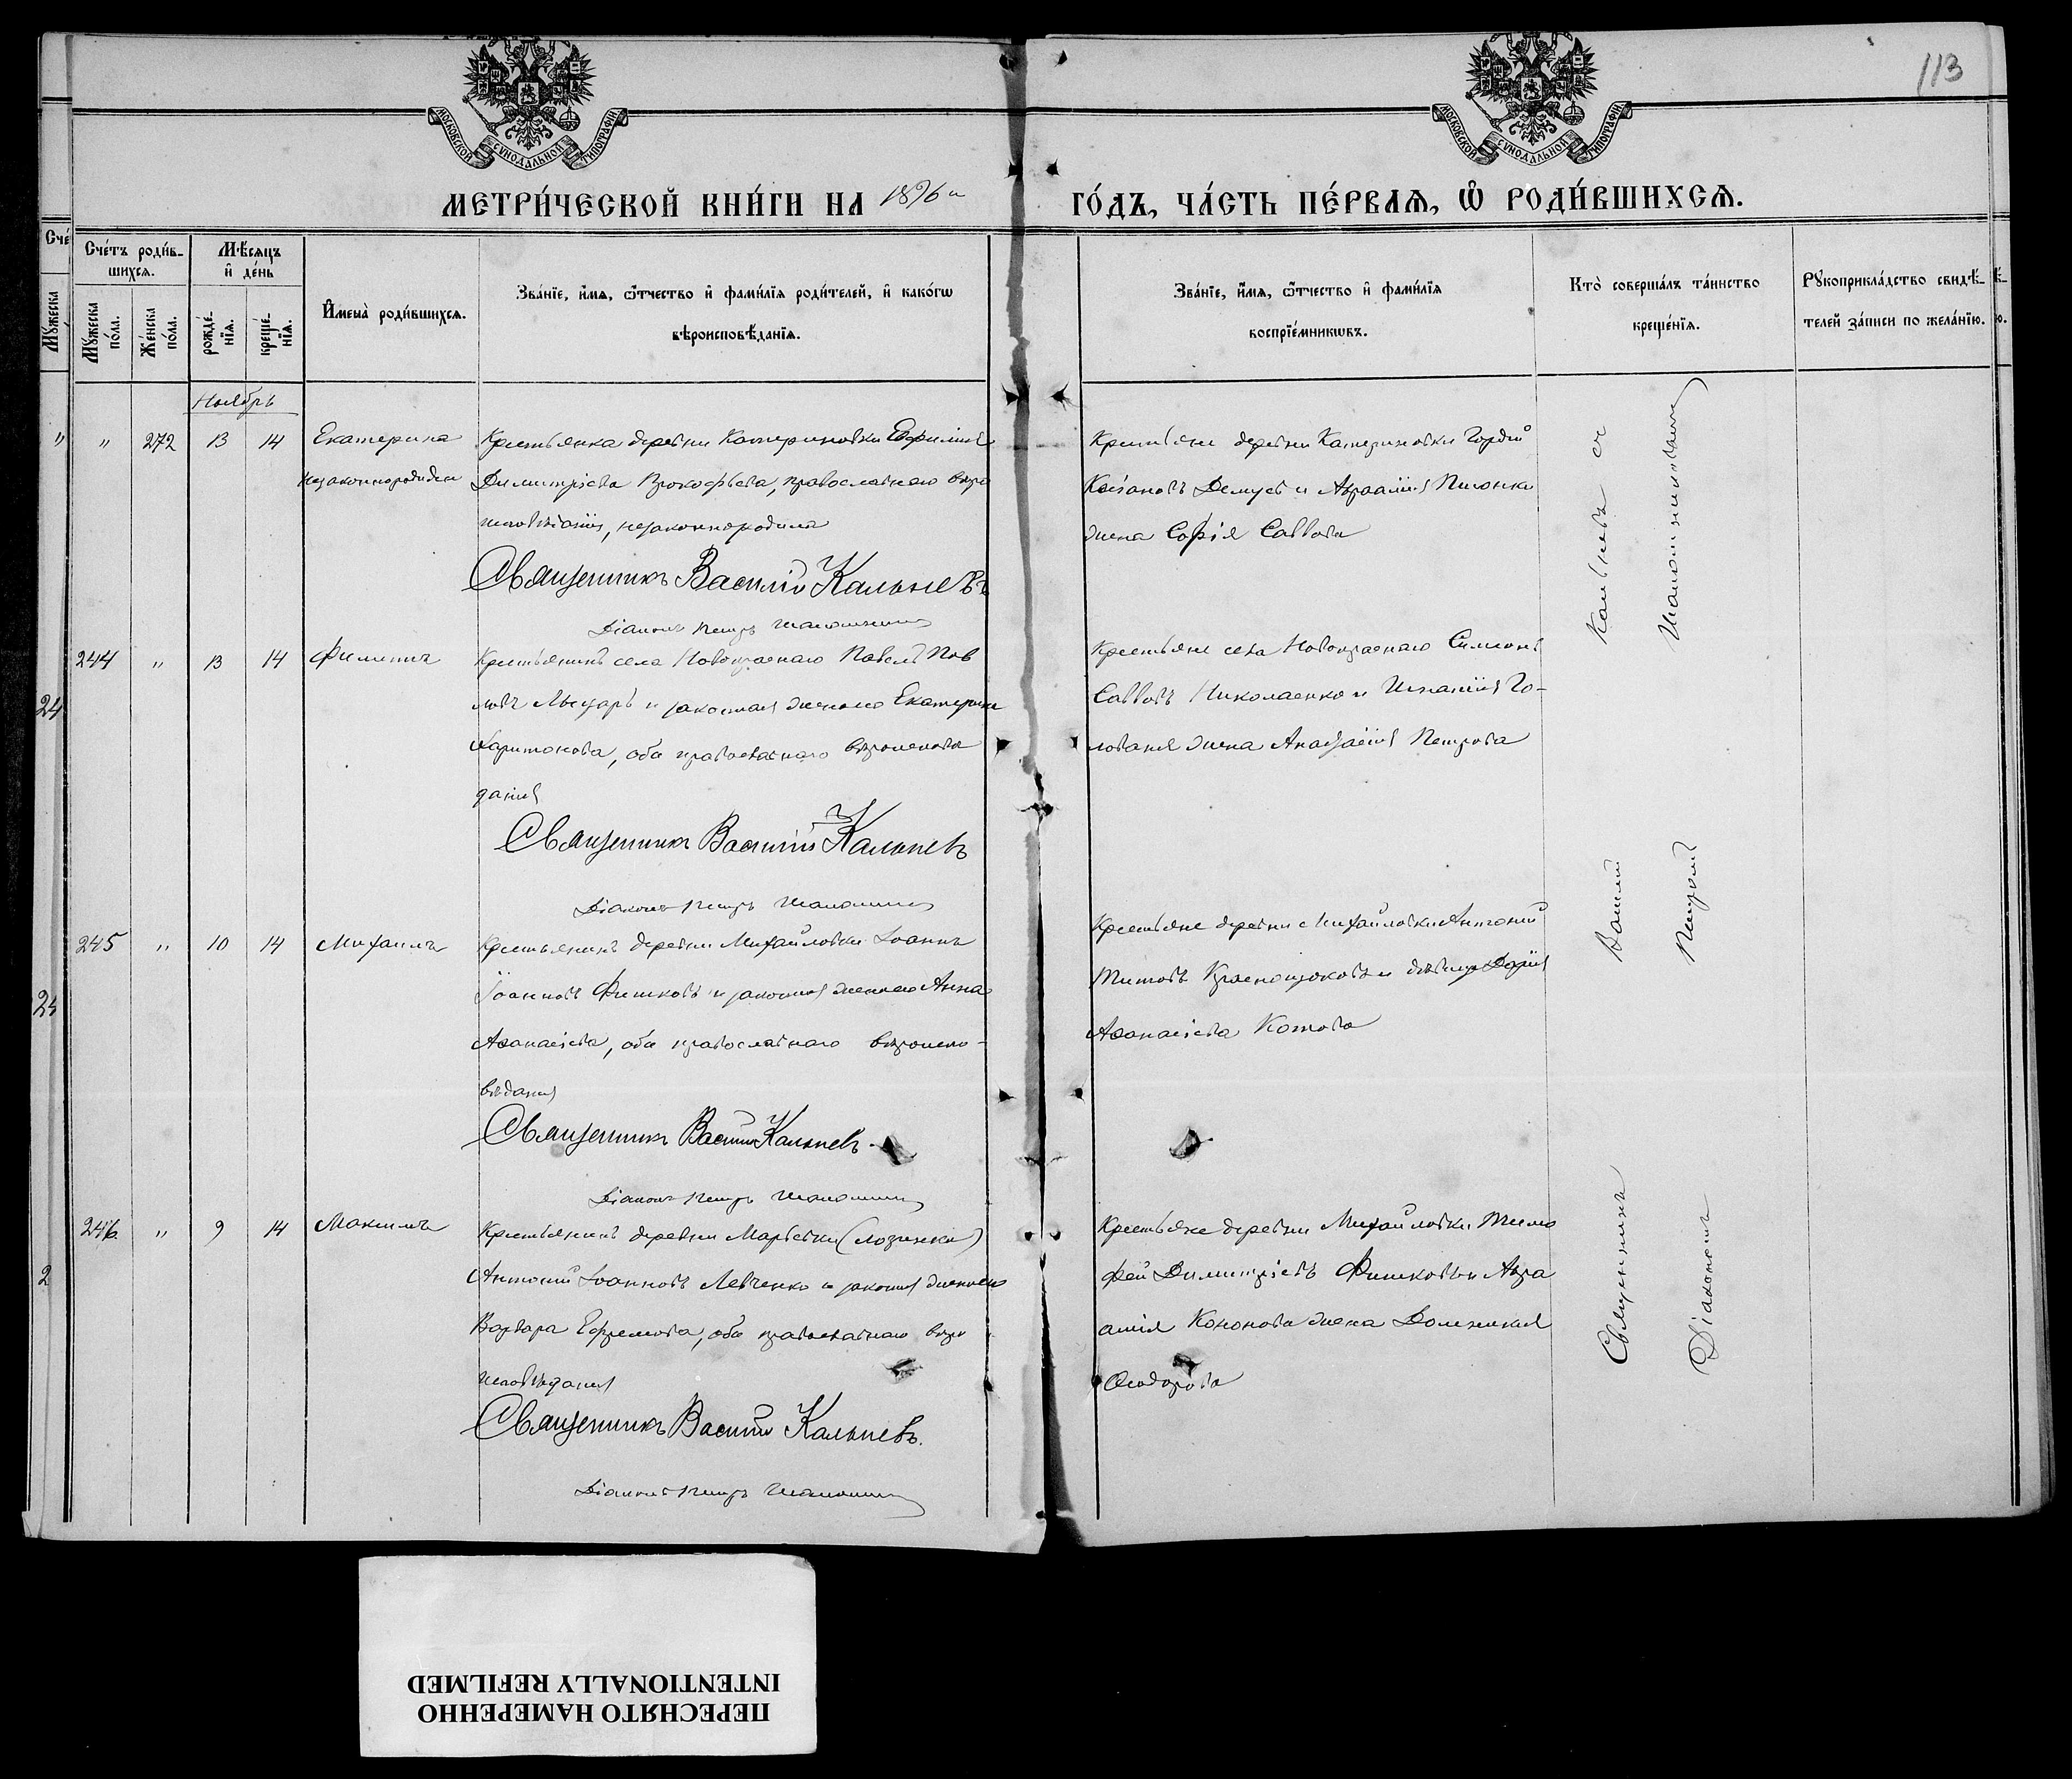 113
МОСКОВСКОЙ СУНОДАЛЬНОЙ ТИПОГРАФІИ
МОСКОВСКОЙ СУНОДАЛЬНОЙ ТИПОГРАФІИ
МЕТРИ́ЧЕСКОЙ КНИ́ГИ НА 1896 ГО́ДЪ, ЧА́СТЬ ПЕ́РВАѦ, Ѡ РОДИ́ВШИХСѦ.
Сче́
Мꙋжеска
Сче́тъ роди́в-
шихсѧ.
Мꙋжеска
по́ла.
Же́нска
по́ла.
Мѣ́сѧцъ
и де́нь
рожде́-
нїѧ.
креще́-
нїѧ.
Имена̀ роди́вшихсѧ.
Зва́нїе, и́мѧ, ѻ́тчество и фами́лїѧ роди́телей, и како́гѡ
вѣроисповѣ́данїѧ.
Зва́нїе, и́мѧ, ѻ́тчество и фами́лїѧ
воспрїе́мникѡвъ.
Кто̀ соверша́лъ та́инство
креще́нїѧ.
Рꙋкоприкла́дство свидѣ́-
телей за́писи по жела́нїю.
Ноябрь
" " 272 13 14 Екатерина
незаконнорожден
Крестьянка деревни Катериновки Евфимія
Димитріева Прокофьева, православнаго вѣро
исповѣданія, незаконнородила
Священникъ Василій Кальневъ
Діаконъ Петръ
Крестьяне деревни Катериновки Гордій
Демус и Авраамія Пиюнка
жена Софія Саввова
244 " 13 14 Филиппъ
Крестьянинъ села Новокраснаго Павелъ Пав
ловъ и законная жена его Екатерина
Харитонова, оба православнаго вѣроисповѣ
данія
Священникъ Василій Кальневъ
Діаконъ Петръ
Крестьяне села Новокраснаго Симеонъ
Савовъ Николаенко и Игнатія Го-
лованя жена Анастасія Петрова
245 " 10 14 Михаилъ
Крестьянинъ деревни Михайловки Іоаннъ
Іоанновъ Фишковъ и законная жена его Анна
Аѳанасіева, оба православнаго вѣроиспо-
вѣданія
Священникъ Василій Кальневъ
Діаконъ Петръ
Крестьяне деревни Михайловки Антоній
Титовъ Краснощоковъ и дѣвица Дарія
Аѳанасіева Котова
246 " 9 14 Максимъ
Крестьянинъ деревни Марьевки (Лозинки)
Антоній Іоанновъ Левченко и законная жена его
Варвара Ефремова, оба православнаго вѣро
исповѣданія
Священникъ Василій Кальневъ.
Діаконъ Петръ
Крестьяне деревни Михайловки Тимо
фей Димитріевъ Фишковъ и Авра
амія Кононова жена Домникія
Ѳеодорова
Священникъ Василій Кальневъ съ
Діакономъ Петромъ
24
24
2
ПЕРЕСНЯТО НАМЕРЕННО
INTENTIONALLY REFILMED